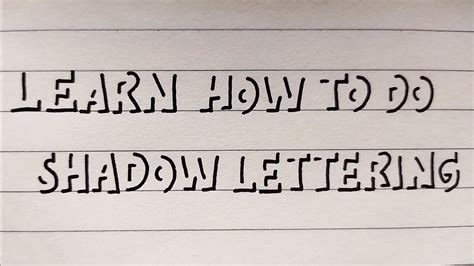 LEARN HOW TO DO
SHADOW LETTERING